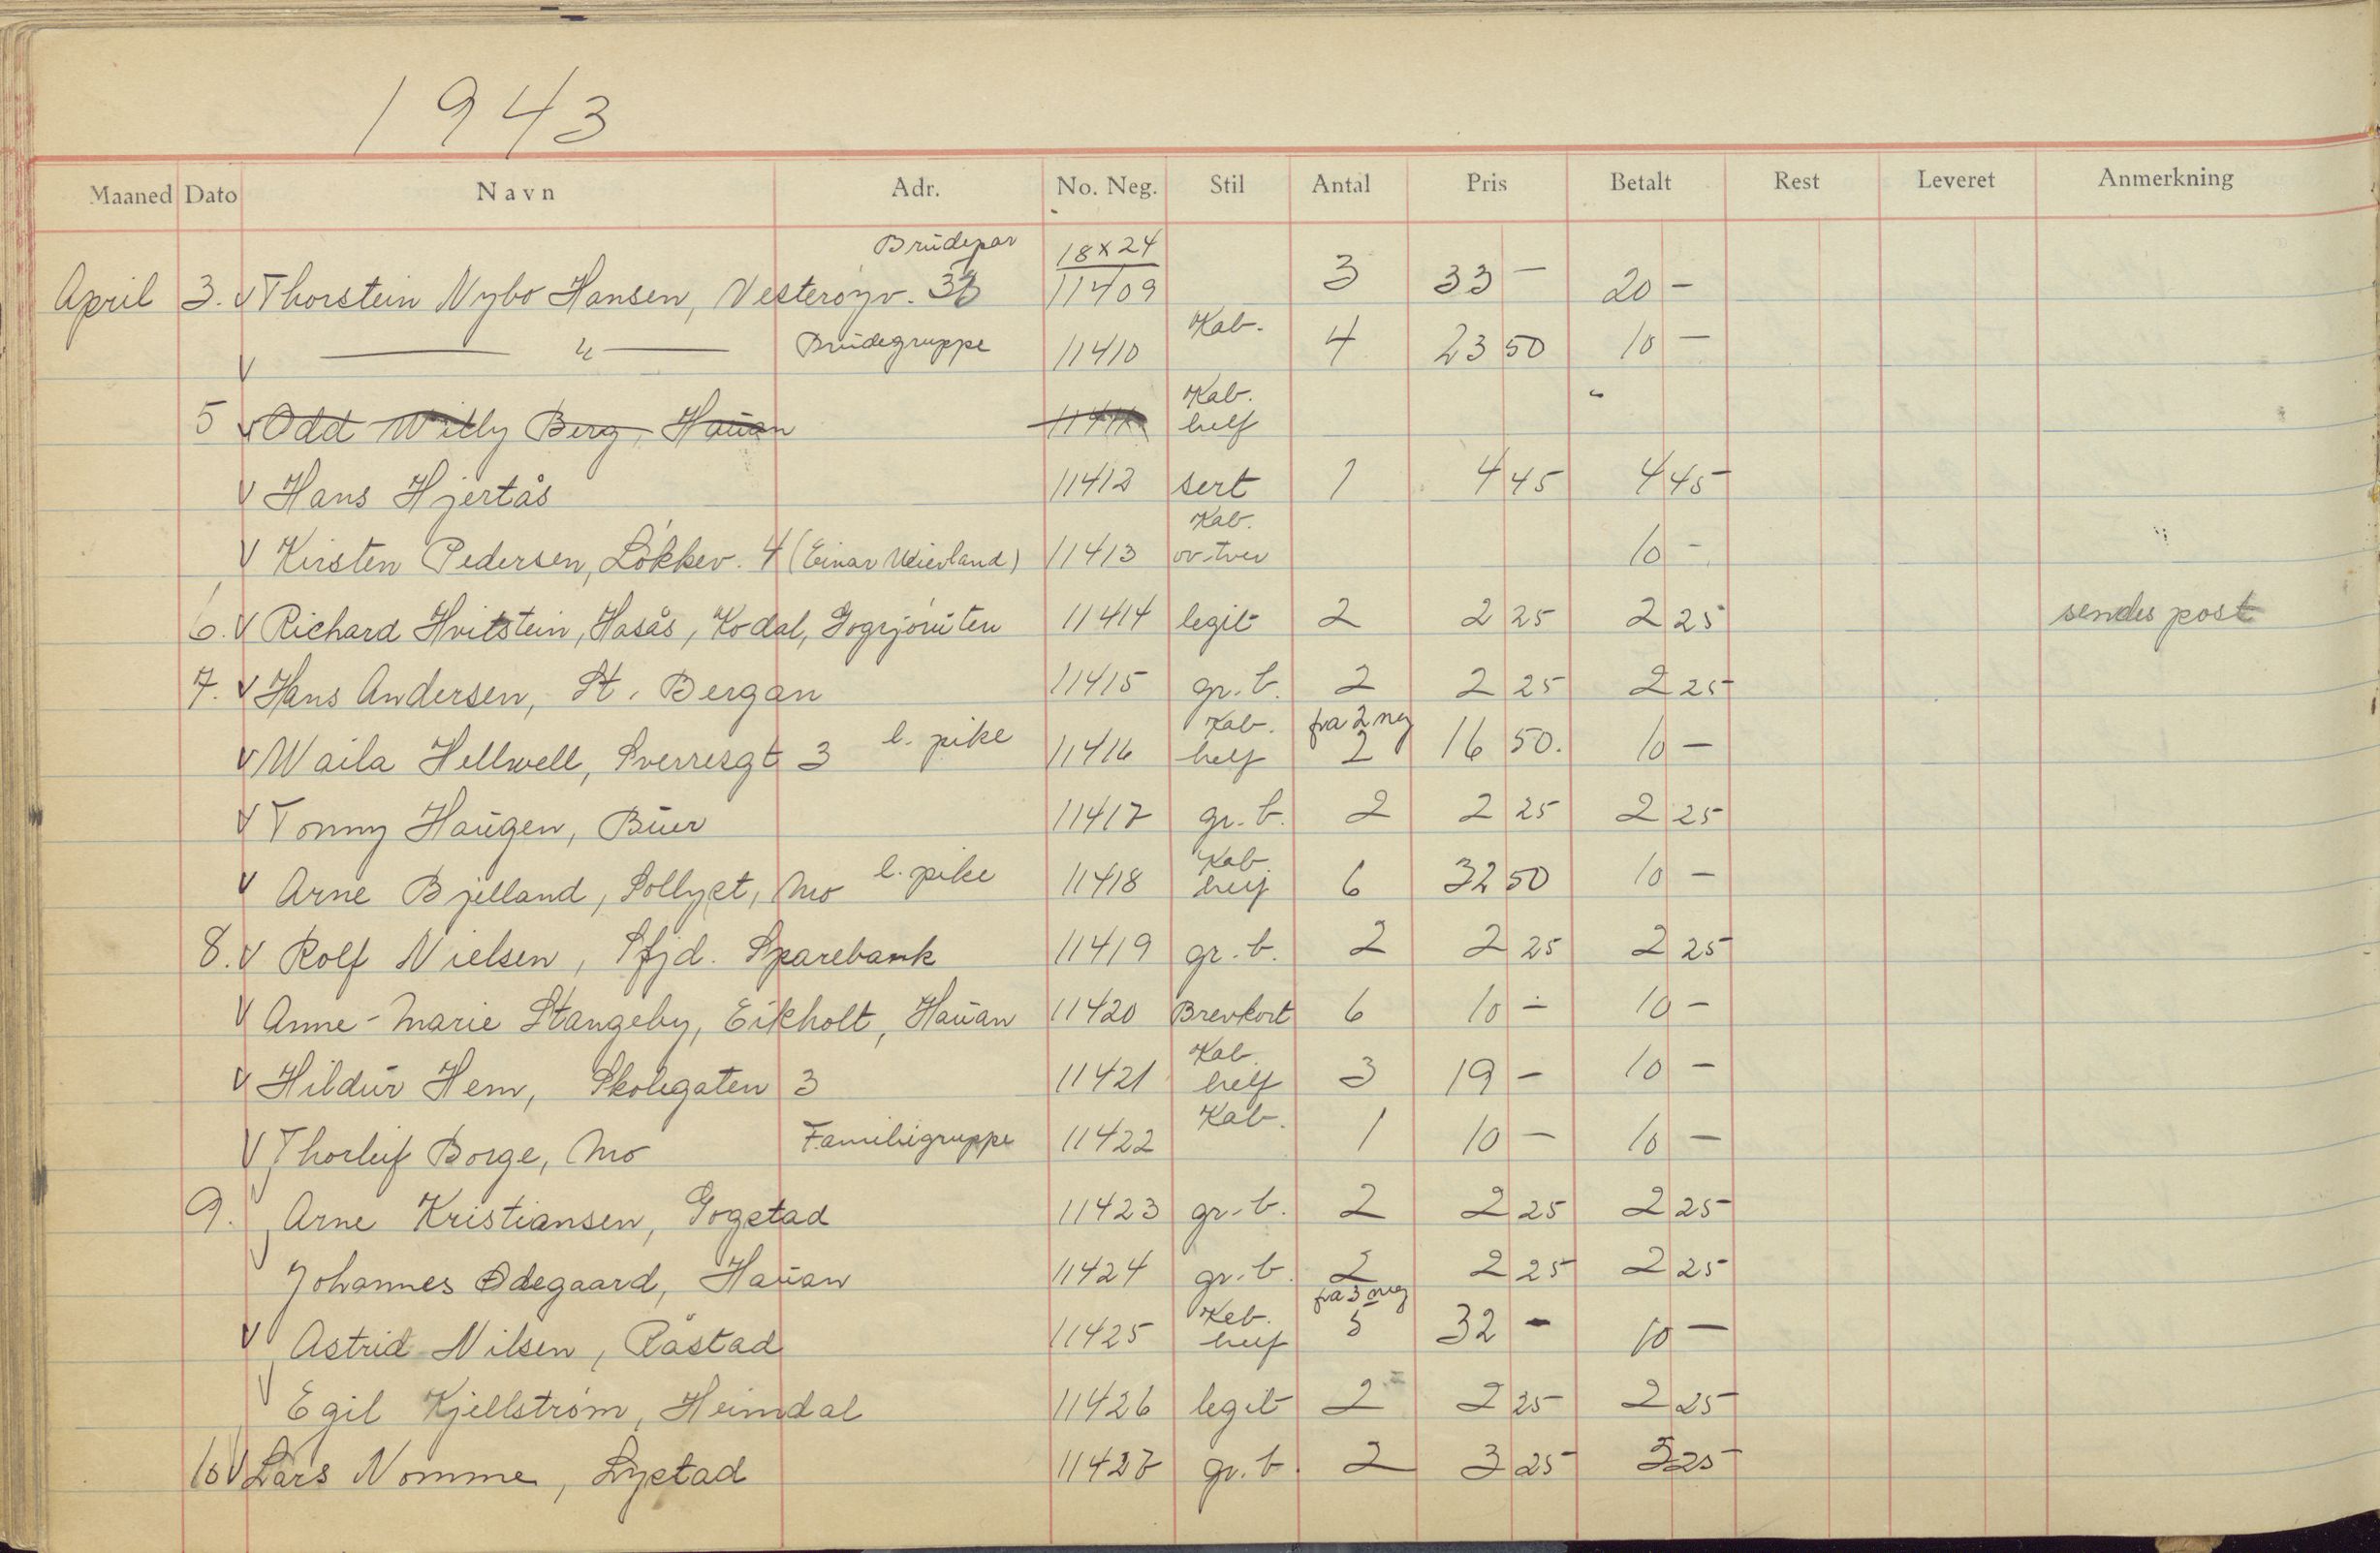 1943
Maaned Dato Navn Adr. No. Neg. Stil Antal Pris Betalt Rest Leveret Anmerkning
Brudepar 18x24
April 3. v Thorstein Nybo Hansen, Vesterøyv. 11409 3 33 – 20 –
v — " — Brudegruppe 11410 Kab. 4 23 50 10 –
Kab.
5 v Odd Willy Berg, Hauan 11411 helf
v Hans Hjertås 11412 sert 1 4 45 4 45
Kab.
v Kirsten Pedersen,Løkkev. 4 (Einar Meierland) 11413 ov-tver 10 –
6. v Richard Hvitstein, Hasås, Kodal, Gogsjøruten 11414 legit 2 2 25 2 25 sendes post
7. v Hans Andersen, St. Bergan 11415 gr. b. 2 2 25 2 25
Kab. fra 2 neg
v Waila Hellwell, Sverresgt 3 l. pike 11416 helf 2 16 50. 10 –
v Tonny Haugen, Buer 11417 gr. b. 2 2 25 2 25
Kab
v Arne Bjelland, Sollyst, Mo l. pike 11418 helf 6 32 50 10 –
8. v Rolf Nielsen, Sfjd. Sparebank 11419 gr. b. 2 2 25 2 25
v Anne-Marie Stangeby, Eikholt, Hauan 11420 Brevkort 6 10 – 10 –
Kab.
v Hildur Hem, Skolegaten 3 11421 helf 3 19 – 10 –
v Thorleif Borge, Mo Familiegruppe 11422 Kab. 1 10 – 10 –
9. v Arne Kristiansen, Gogstad 11423 gr. b. 2 2 25 2 25
v Johannes Ødegaard, Hauan 11424 gr. b. 2 2 25 2 25
Kab. fra 3 neg
v Astrid Nilsen, Råstad 11425 helf 5 32 – 10 –
v Egil Kjellstrøm, Heimdal 11426 legit 2 2 25 2 25
10 v Lars Nomme, Lystad 11427 gr. b. 2 3 25 3 25